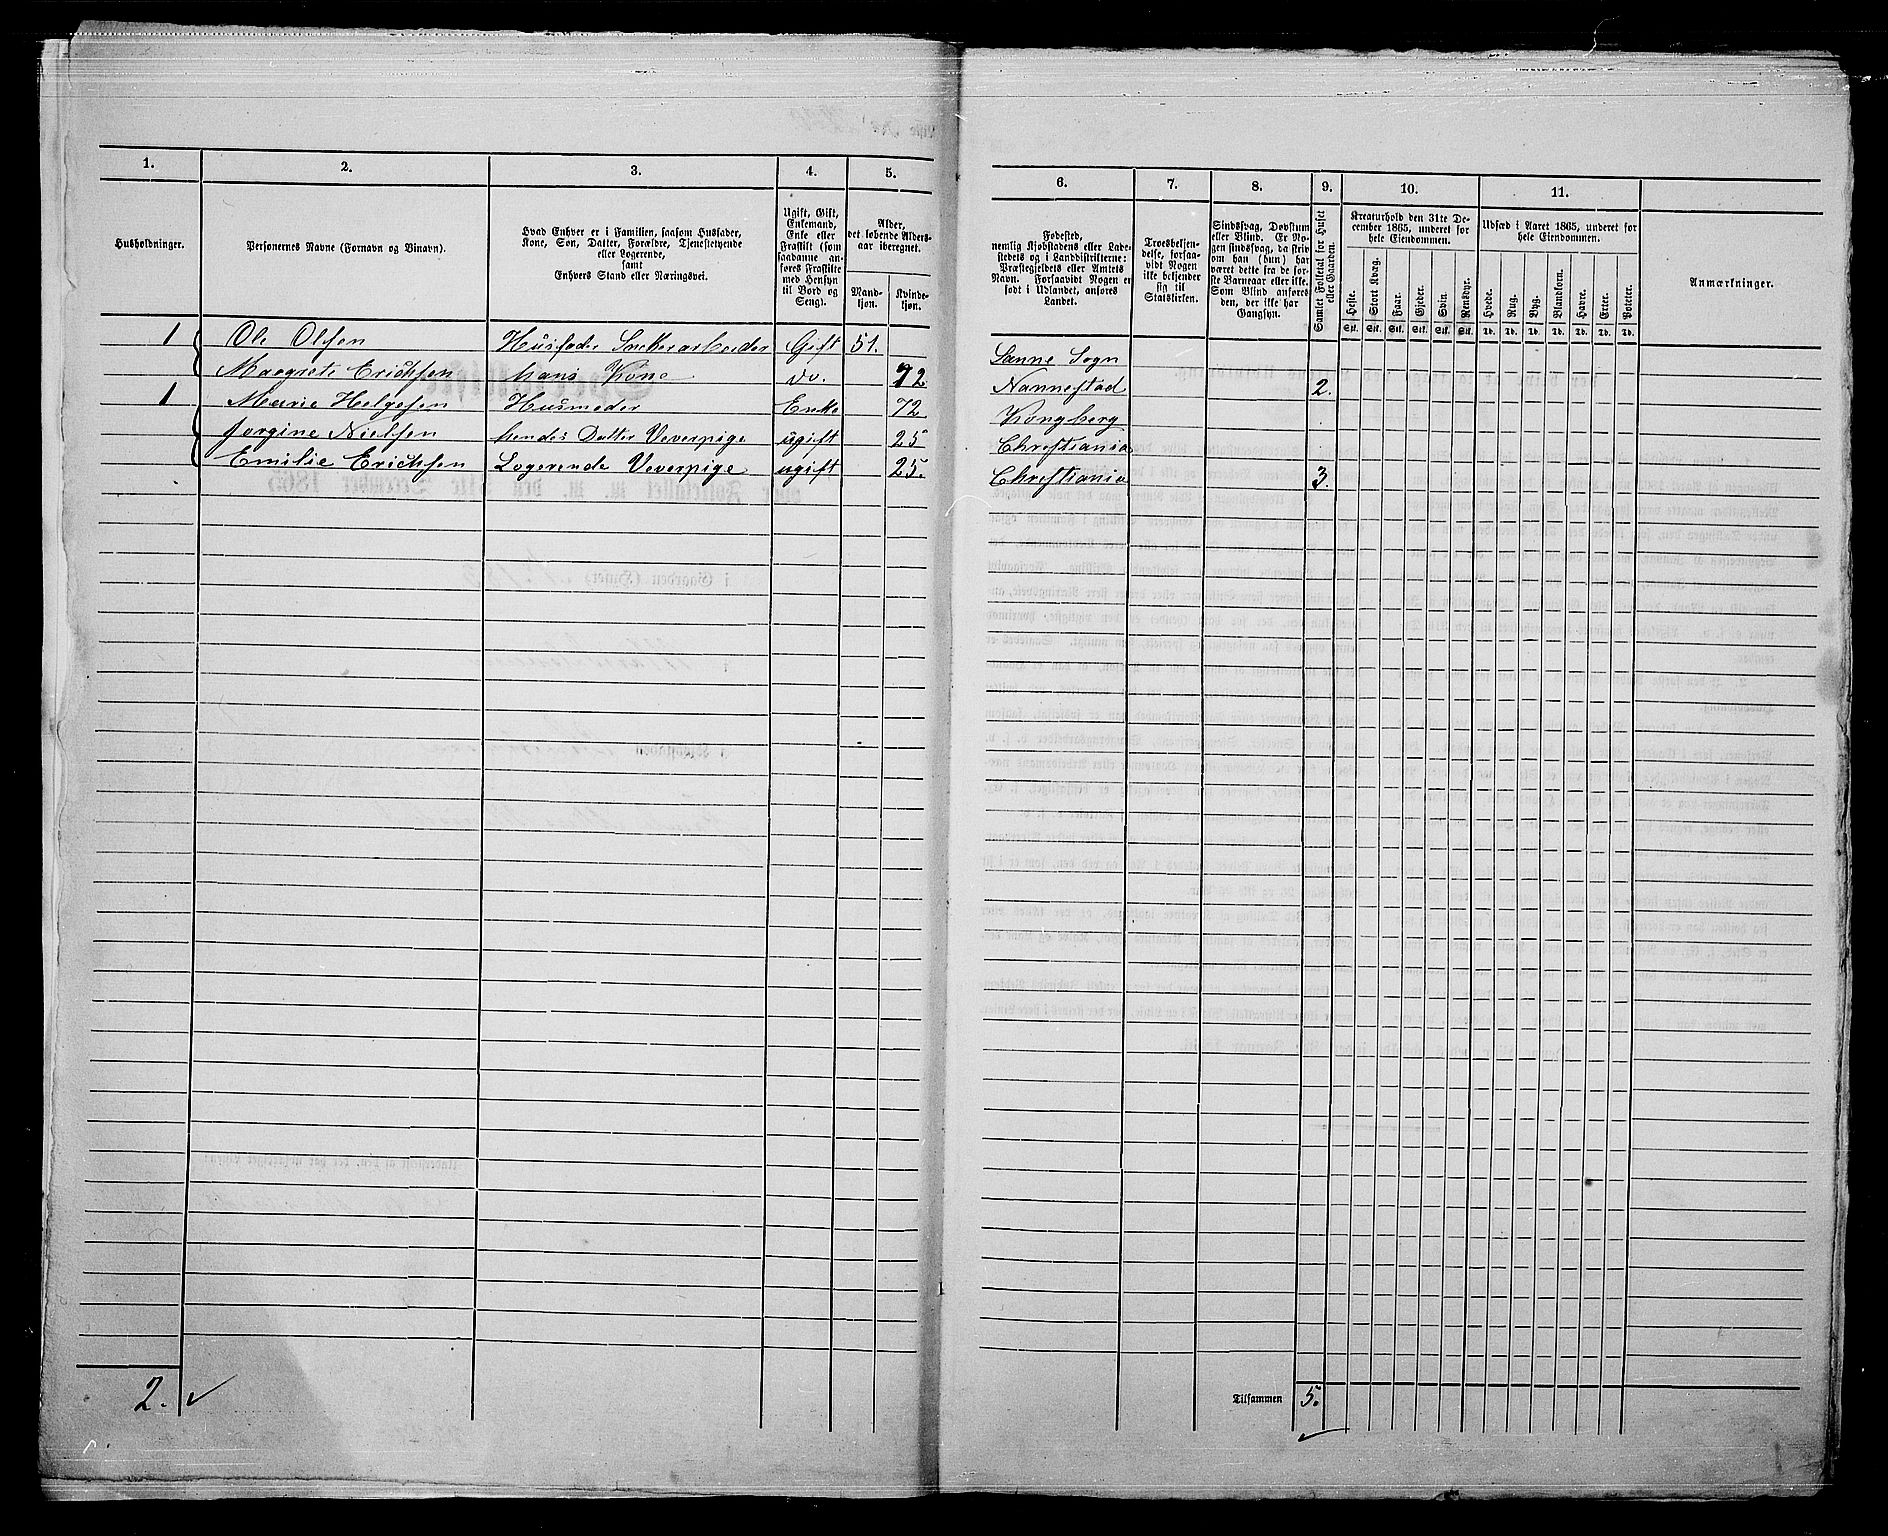 1. 2. 3. 4. 5.
Husholdninger.
Personernes Navne (Fornavn og Binavn).
Hvad Enhver er i Familien, saasom Husfader,
Kone, Søn, Datter, Forældre, Tjenestetyende
eller Logerende,
samt
Enhvers Stand eller Næringsvei.
Ugift, Gift,
Enkemand,
Enke eller
Fraskilt (som
saadanne an-
føres Fraskilte
med Hensyn
til Bord og
Seng).
Alder,
det løbende Alders-
aar iberegnet.
Mand-
kjøn.
Kvinde-
kjøn.
1 Ole Olsen Husfader Snekerarbeider Gift 51.
Maegrete Erichsen hans Kone do.
1 Marie Helgesen Husmoder Enke 72
Jorgine Nielsen hendes Datter Veverpige ugift 25
Emilie Erichsen Logerende Veverpige ugift 25.
2. ✓
6. 7. 8. 9. 10. 11.
Fødested,
nemlig Kjøbstadens eller Lade-
stedets og i Landdistrikterne:
Præstegjeldets eller Amtets
Navn. Forsaavidt Nogen er
født i Udlandet, anføres
Landet.
Troesbekjen-
delse, forsaa-
vidt Nogen
ikke bekjender
sig til
Statskirken.
Sindssvag, Døvstum
eller Blind. Er No-
gen sindssvag, da skriv
om han (hun) har
været dette fra de før-
ste Barneaar eller ikke.
Som Blind anføres
den, der ikke har
Gangsyn.
Samlet Folketal for Huset
eller Gaarden.
Kreaturhold den 31te De-
cember 1865, underet for
hele Eiendommen.
Heste. Stort Kvæg. Faar. Gjeder. Svin. Rensdyr.
Stk. Stk. Stk. Stk. Stk. Stk.
Udsæd i Aaret 1865, underet for
hele Eiendommen.
Hvede. Rug. Byg. Blandkorn. Havre. Erter. Poteter.
Td. Td. Td. Td. Td. Td. Td.
Anmærkninger.
Sanne Sogn
Nannestad 2.
Kongberg
Christiania
Christiania 3.
Tilsammen 5.
✓